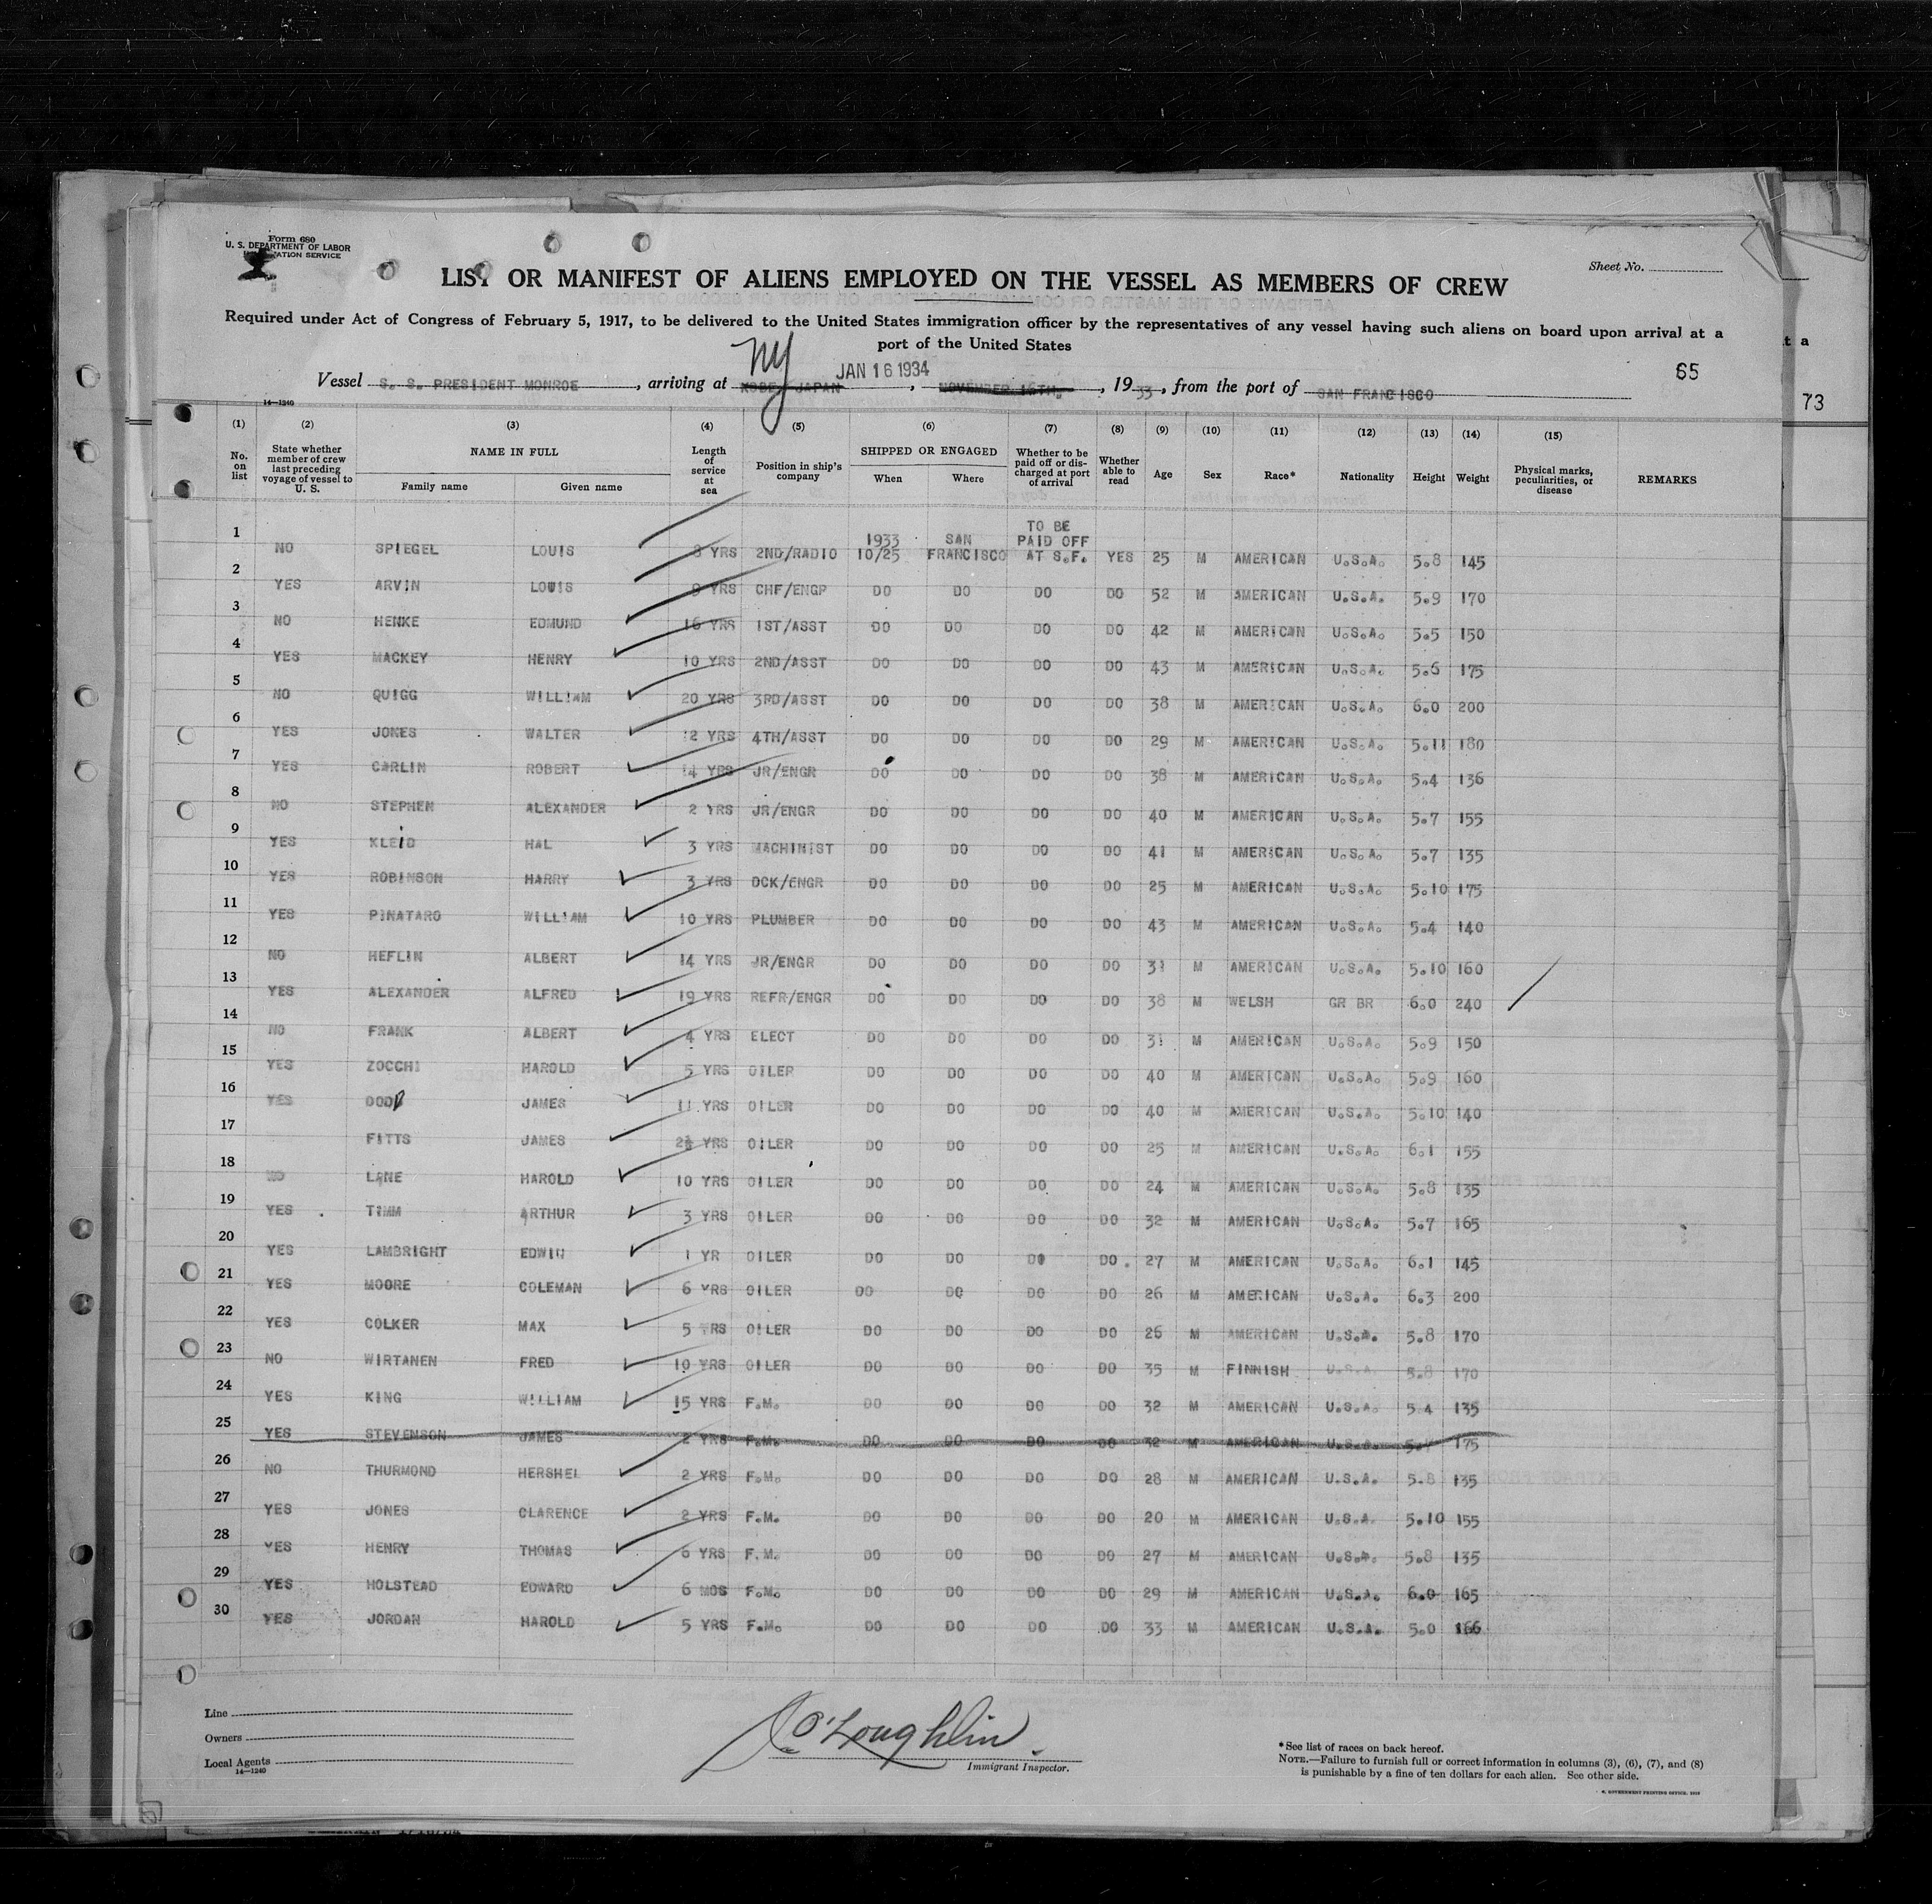 Form 680
U. S. DEPARTMENT OF LABOR
SERVICE
Sheet No.
LIST OR MANIFEST OF ALIENS EMPLOYED ON THE VESSEL AS MEMBERS OF CREW
Required under Act of Congress of February 5, 1917, to be delivered to the United States immigration officer by the representatives of any vessel having such aliens on board upon arrival at a
port of the United States
t a
NY JAN 16 1934 65
Vessel S. S. PRESIDENT MONROE, arriving at KOBE, JAPAN, NOVEMBER 16TH., 1933, from the port of SAN FRANCISCO
73
14—1240
(1) (2) (3) (4) (5) (6) (7) (8) (9) (10) (11) (12) (13) (14) (15)
No. on list State whether member of crew last preceding voyage of vessel to U. S. NAME IN FULL Family name Given name Length of service at sea Position in ship's company SHIPPED OR ENGAGED When Where Whether to be paid off or discharged at port of arrival Whether able to read Age Sex Race* Nationality Height Weight Physical marks, peculiarities, or disease REMARKS
1 NO SPIEGEL LOUIS 8 YRS 2ND/RADIO 1933 10/25 SAN FRANCISCO TO BE PAID OFF AT S.F. YES 25 M AMERICAN U.S.A. 5.8 145
2 YES ARVIN LOUIS 9 YRS CHF/ENGR DO DO DO DO 52 M AMERICAN U.S.A. 5.9 170
3 NO HENKE EDMUND 16 YRS 1ST/ASST DO DO DO DO 42 M AMERICAN U.S.A. 5.5 150
4 YES MACKEY HENRY 10 YRS 2ND/ASST DO DO DO DO 43 M AMERICAN U.S.A. 5.6 175
5 NO QUIGG WILLIAM 20 YRS 3RD/ASST DO DO DO DO 38 M AMERICAN U.S.A. 6.0 200
6 YES JONES WALTER 12 YRS 4TH/ASST DO DO DO DO 29 M AMERICAN U.S.A. 5.11 180
7 YES CARLIN ROBERT 14 YRS JR/ENGR DO DO DO DO 38 M AMERICAN U.S.A. 5.4 136
8 NO STEPHEN ALEXANDER 2 YRS JR/ENGR DO DO DO DO 40 M AMERICAN U.S.A. 5.7 155
9 YES KLEID HAL 3 YRS MACHINIST DO DO DO DO 41 M AMERICAN U.S.A. 5.7 135
10 YES ROBINSON HARRY 3 YRS DCK/ENGR DO DO DO DO 25 M AMERICAN U.S.A. 5.10 175
11 YES PINATARO WILLIAM 10 YRS PLUMBER DO DO DO DO 43 M AMERICAN U.S.A. 5.4 140
12 NO HEFLIN ALBERT 14 YRS JR/ENGR DO DO DO DO 31 M AMERICAN U.S.A. 5.10 160
13 YES ALEXANDER ALFRED 19 YRS REFR/ENGR DO DO DO DO 38 M WELSH GR BR 6.0 240
14 NO FRANK ALBERT 4 YRS ELECT DO DO DO DO 31 M AMERICAN U.S.A. 5.9 150
15 YES ZOCCHI HAROLD 5 YRS OILER DO DO DO DO 40 M AMERICAN U.S.A. 5.9 160
16 YES DODD JAMES 11 YRS OILER DO DO DO DO 40 M AMERICAN U.S.A. 5.10 140
17 FITTS JAMES 2½ YRS OILER DO DO DO DO 25 M AMERICAN U.S.A. 6.1 155
18 NO LANE HAROLD 10 YRS OILER DO DO DO DO 24 M AMERICAN U.S.A. 5.8 135
19 YES TIMM ARTHUR 3 YRS OILER DO DO DO DO 32 M AMERICAN U.S.A. 5.7 165
20 YES LAMBRIGHT EDWIN 1 YR OILER DO DO DO DO 27 M AMERICAN U.S.A. 6.1 145
21 YES MOORE COLEMAN 6 YRS OILER DO DO DO DO 26 M AMERICAN U.S.A. 6.3 200
22 YES COLKER MAX 5 YRS OILER DO DO DO DO 26 M AMERICAN U.S.A. 5.8 170
23 NO WIRTANEN FRED 10 YRS OILER DO DO DO DO 35 M FINNISH U.S.A. 5.8 170
24 YES KING WILLIAM 15 YRS F.M. DO DO DO DO 32 M AMERICAN U.S.A. 5.4 135
25 YES STEVENSON JAMES 2 YRS F.M. DO DO DO DO 32 M AMERICAN U.S.A. 175
26 NO THURMOND HERSHEL 2 YRS F.M. DO DO DO DO 28 M AMERICAN U.S.A. 5.8 135
27 YES JONES CLARENCE 2 YRS F.M. DO DO DO DO 20 M AMERICAN U.S.A. 5.10 155
28 YES HENRY THOMAS 6 YRS F.M. DO DO DO DO 27 M AMERICAN U.S.A. 5.8 135
29 YES HOLSTEAD EDWARD 6 MOS F.M. DO DO DO DO 29 M AMERICAN U.S.A. 6.0 165
30 YES JORDAN HAROLD 5 YRS F.M. DO DO DO DO 33 M AMERICAN U.S.A. 5.0 166
Line
Owners
Local Agents
14—1240
O'Loughlin
Immigrant Inspector.
*See list of races on back hereof.
NOTE.—Failure to furnish full or correct information in columns (3), (6), (7), and (8)
is punishable by a fine of ten dollars for each alien. See other side.